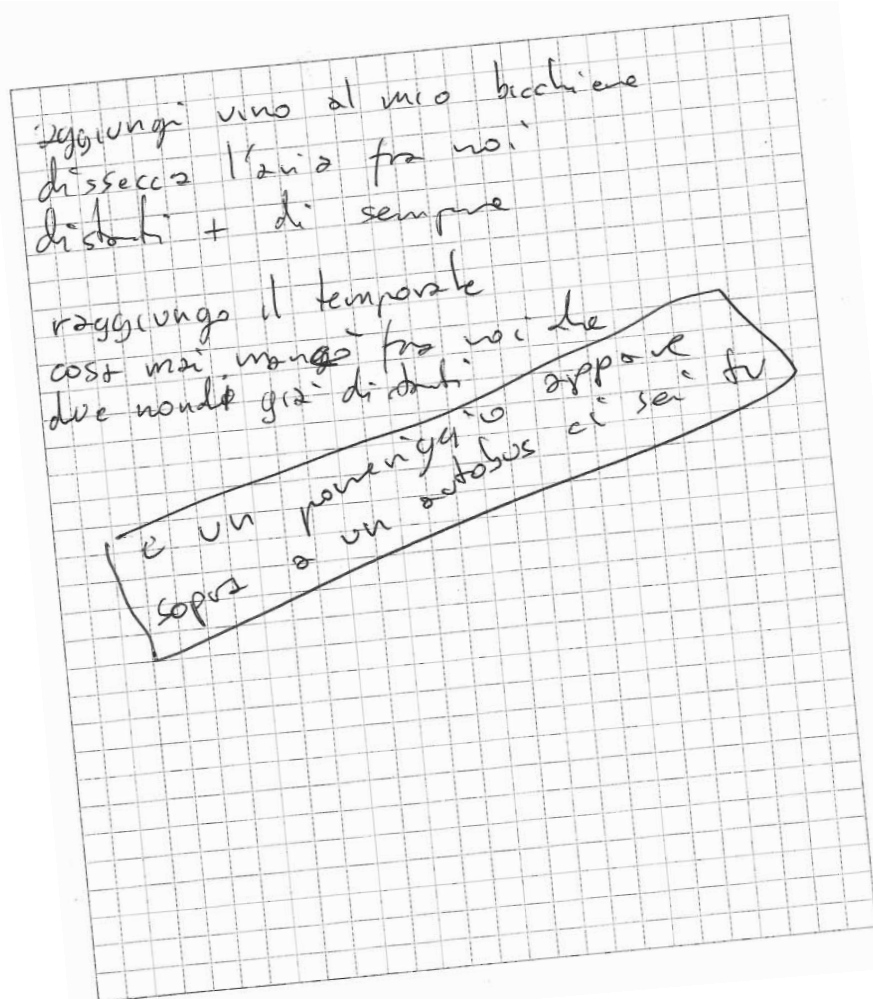 aggiungi vino al mio bicchiere
dissecca l'aria fra noi
distanti + di sempre
raggiungo il temporale
cosa mai mancò fra noi che
due mondi già distanti
e un pomeriggio appare
sopra a un autobus ci sei tu